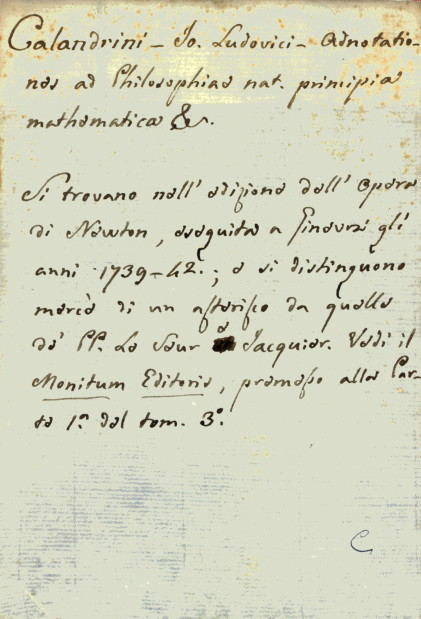 Calandrini – Jo. Ludovici – Adnotatio-
nes ad Philosophiae nat. principia
mathematica &c.
Si trovano nell' edizione dell' Opera
di Newton, eseguita a Ginevra gli
anni 1739–42.; e si distinguono
mercè di un asterisco da quelle
de' PP. Le Seur e Jacquier. Vedi il
Monitum Editoris, premesso alla Par-
te 1.ª del tom. 3.º
C